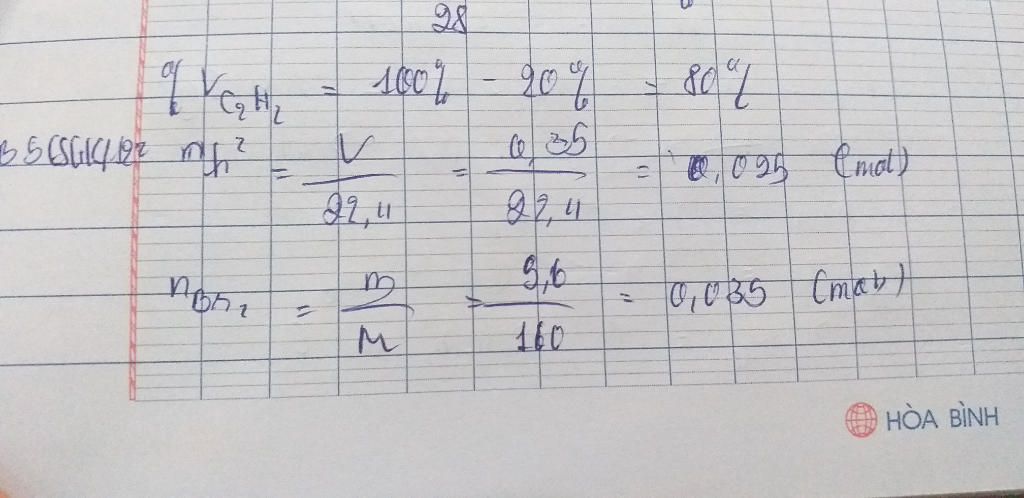 28
% V C₂H₂ = 100% - 20% = 80%
= V / 22,4 = 0,35 / 22,4 = 0,025 (mol)
nBr₂ = m / M = 5,6 / 160 = 0,035 (mol)
HÒA BÌNH